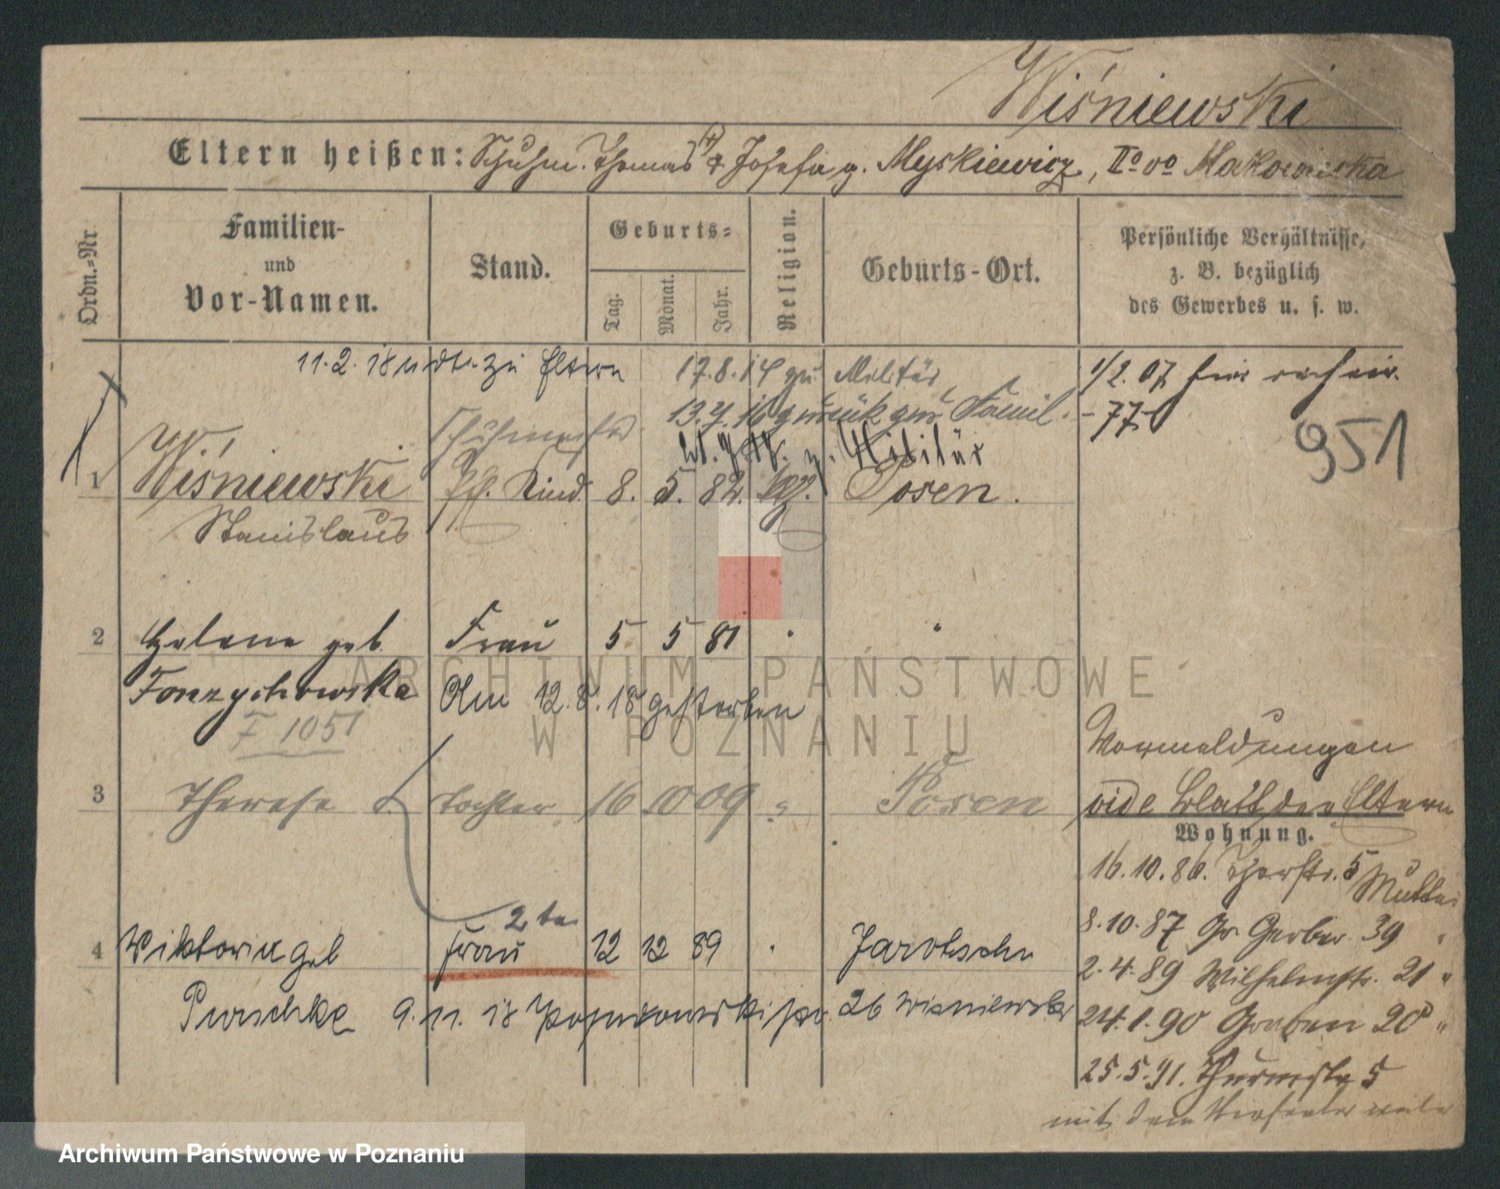 Wiśniewski
Eltern heißen: Schuhm. Thomas u. Josefa g. Myskiewicz, II⁰ v⁰ Makowiecka
Ordn.-Nr
Familien-
und
Vor-Namen.
Stand.
Geburts-
Tag.
Monat.
Jahr.
Religion.
Geburts-Ort.
Persönliche Verhältnisse,
z. B. bezüglich
des Gewerbes u. s. w.
11.2.18 zu Eltern
17.8.14 zu Militär
1/2.07
13.7.16 zurück zur Famil.
-77-
Militär
951
1 Wiśniewski Kind 8. 5. 82. Posen.
Stanislaus
2 Helene geb. Frau 5 5 81 "
F 1051
Am 12.8.18 gestorben
ARCHIWUM PAŃSTWOWE
W POZNANIU
Vormeldungen
3 Therese Tochter 16 10 09 " Posen
vide Blatt der Eltern
Wohnung.
16.10.86. 5 Mutter
8.10.87 Gr. Gerber. 39 "
2te
4 Viktoria geb Frau 12 12 89 " Jarotschin
2.4.89 Wilhelmstr. 21 "
9.11.18 26
24.1.90 Graben 20 "
25.5.91. Thurmstr 5
mit dem
Archiwum Państwowe w Poznaniu